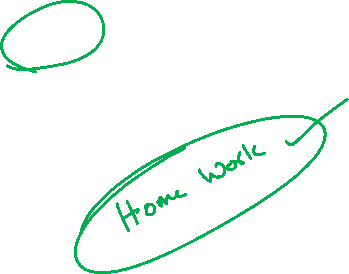 Home Work